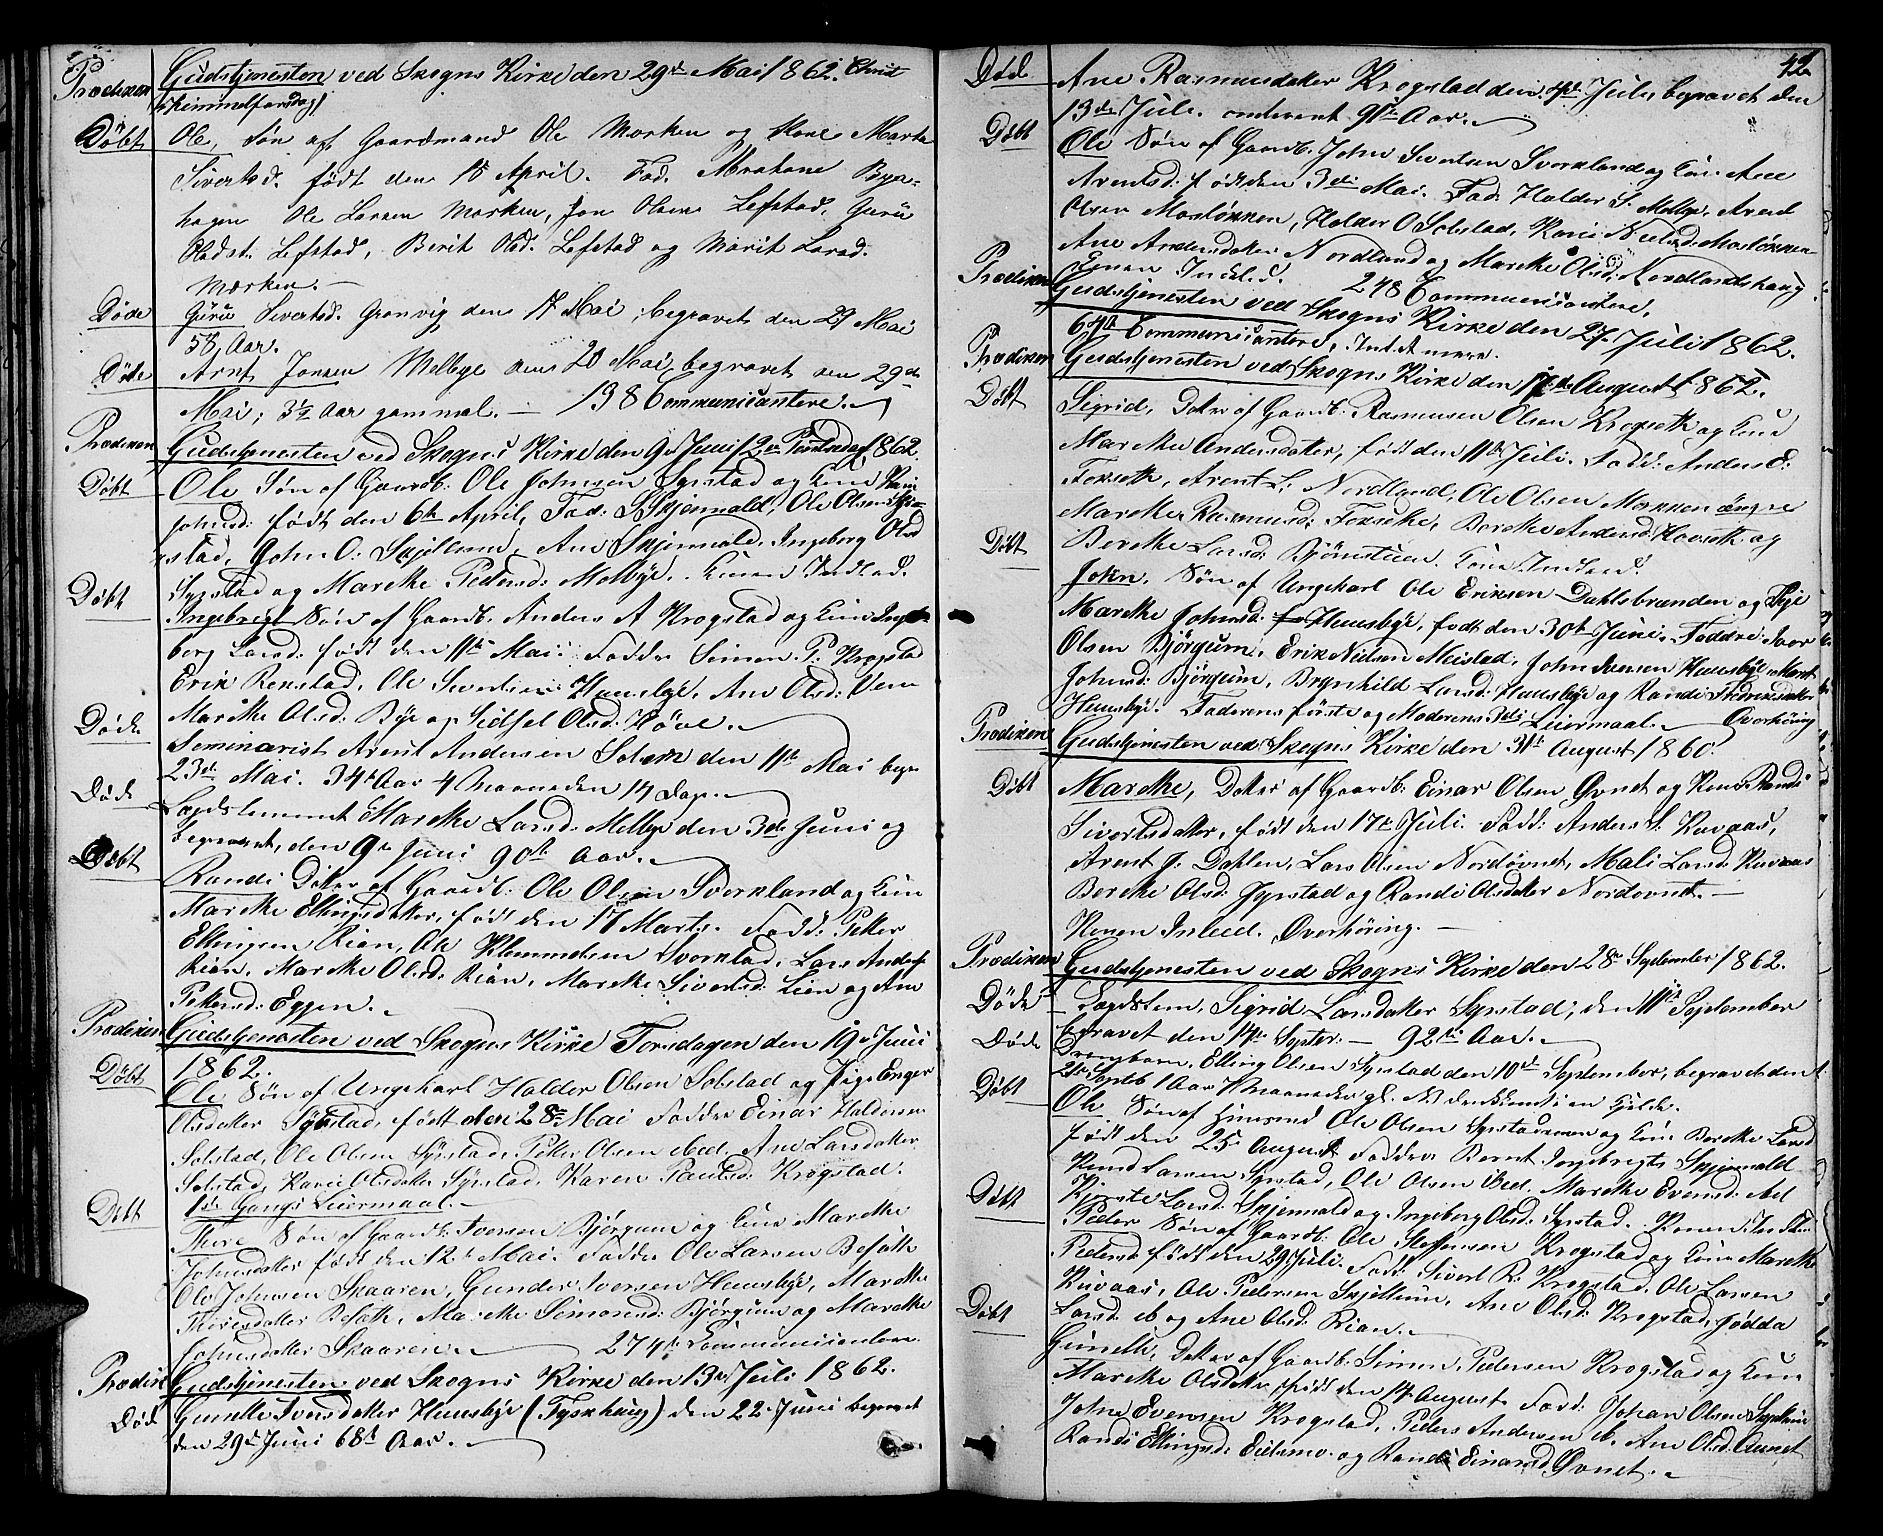 Prædiken Gudstjenesten ved Skogns Kirke den 29de Mai 1862. Christ
himmelfartsdag
Döbt Ole, Søn af Gaardmand Ole Morken og Kone Marta
Sivertsd. födt den 15 April. Fad. Abraham
hagen Ole Larsen Morken, Jon Olsen Lefstad, Guru
Olsdt. Lefstad, Berit Olsd. Lefstad og Marit Larsd.
Morken. —
Døde Guru Sivertsd. Grønvig den 17 Mai, begravet den 29 Mai
58 Aar.
Døde Arnt Jonsen Melbye den 20 Mai, begravet den 29de
Mai; 3½ Aar gammel. — 138 Communicantere.
Prædiken Gudstjenesten ved Skogns Kirke den 9de Juni 2den Pintsedag 1862.
Døbt Ole Søn af Gaardb. Ole Johnsen Syrstad og Kone Kari
Johnsd. födt den 6te April, Fad: Skjenald, Ole Olsen
stad, John O. Skjellum, Ane Skjenald, Ingeborg Olsd
Syrstad og Marethe Pedersd. Melbye. Konen Indled.
Døbt Ingebrigt Søn af Gaardb. Anders A Krogstad og Kone Inge
borg Larsd. födt den 11te Mai Faddre Simen P. Krogstad
Erik Renstad, Ole Sivertsen Huusbye, Ane Olsd:
Marethe Olsd: Bye og Sidsel Olsd: Höve.
Døde Seminarist Arent Andersen Solem den 11te Mai begr.
23de Mai. 34te Aar 4 Maaneder 14 Dage.
Døde Lægdslemmet Marethe Larsd. Melbye den 3de Juni og
begravet den 9de Juni 90te Aar.
Døbt Randi Datter af Gaardb. Ole Olsen Svorkland og Kone
Marethe Ellingsdatter, födt den 17 Marts. Fadd: Petter
Ellingsen Rian, Ole Klemmetsen Svorkland, Lars Anders
Rian, Marethe Olsd. Rian, Marethe Sivertsd. Lien og Ane
Pettersd: Eggen.
Prædiken Gudstjenesten ved Skogns Kirke Torsdagen den 19de Juni
1862.
Döbt Ole Søn af Ungekarl Halder Olsen Solstad og Pige Enger
Olsdatter Syrstad, födt den 28de Mai Faddre Einar Haldersen
Solstad, Ole Olsen Syrstad, Peter Olsen ibid, Ane Larsdatter
Solstad, Kari Olsdatter Syrstad, Karen Paulsd: Krogstad.
1ste Gangs Leiermaal.
Döbt Thore Søn af Gaardb. Iversen Björgum og Kone Marethe
Johnsdatter födt den 12te Mai. Faddre Ole Larsen Besöth
Ole Johnsen Skaaren, Gunder Iversen Huusbye, Marethe
Thoresdatter Besöth, Marethe Simonsd: Björgum og Marethe
Johnsdatter Skaaren. 274 Communicantere.
Prædiken Gudstjenesten ved Skogns Kirke den 13de Juli 1862.
Död Gunelle Iversdatter Huusbye (Tyskhaug) den 22 Juni begravet
den 29de Juni 68te Aar.
42
Död Ane Rasmusdatter Krogstad den Juli, begravet den
13de Juli. omtrent 91te Aar.
Döbt Ole Søn af Gaardb. John Sivertsen Svorkland og Kone Ane
Arentsd: födt den 3de Mai. Fad. Halder S. Melbye, Arent
Olsen Moslökken, Halder O Solstad, Kari Neelsd: Moslökken
Ane Andersdatter Nordland og Marethe Olsd: Nordlandshaug
Konen Indled. 248 Communicantere.
Prædiken Gudstjenesten ved Skogns Kirke den 27. Juli 1862.
Communicantere, Intet mere.
Prædiken Gudstjenesten ved Skogns Kirke den 17de August 1862.
Döbt Sigrid, Datter af Gaardb. Rasmusen Olsen Krogseth og Kone
Marethe Andersdatter, födt den 11te Juli. Fadd: Anders O:
Forseth, Arent L. Nordland, Ole Olsen Morken ængre
Marethe Rasmusd: Forsethe, Berethe Andersd: Hovseth og
Berethe Larsd: Björnstuen. Kone Indled.
Döbt John, Søn af Ungekarl Ole Eriksen Dahlsbranden og Pige
Marethe Johnsd: Huusbye, födt den 30te Juni. Faddre Iver
Olsen Björgum, Erik Nielsen Meistad, John Iversen Huusbye Marit
Johnsd: Björgum, Brynhild Larsd: Huusbye og Randi Fredriksdatter
Huusbye. Faderens første og Moderens 3die Leiermaal. Overhöring
Prædiken Gudstjenesten ved Skogns Kirke den 31te August 1860.
Döbt Marethe, Datter af Gaardb. Einar Olsen Qvnet og Kone Randi
Sivertsdatter, født den 17te Juli. Fadd: Anders S. Kuvaas,
Arent J. Dahlen, Lars Olsen Nordövnet, Mali Larsd: Kuvaas
Berethe Olsd: Syrstad og Randi Olsdatter Nordovnet. —
Konen Inled. Overhöring. —
Prædiken Gudstjenesten ved Skogns Kirke den 28de September 1862.
Döde Lægdslem, Sigrid Larsdatter Syrstad; den 11te September
begravet den 14de Septer. — 92te Aar.
Døde Drengbarn, Elling Olsen Syrstad den 10de September, begravet den
21de Septb 1 Aar Maaneder gl. NB druknet i en Kjelde.
Döbt Ole Søn af Huusmd Ole Olsen Syrstadmoen og Kone Berethe Larsd
födt den 25de August Faddre Bernt Ingebrigts Skjenald
Knud Larsen Syrstad, Ole Olsen ibid. Marethe Evensd: ibd
Kjerste Larsd: Skjenald og Ingeborg Olsd: Syrstad. Konen Indled.
Döbt Peder Søn af Gaardb. Ole Steffensen Krogstad og Kone Marethe
Pedersd födt den 29. Juli. Fadd: Sivert R: Krogstad, Ole Larsen
Kuvaas, Ole Pedersen Skjellum, Ane Olsd: Krogstad, Jödda
Larsd: ib og Ane Olsd. Rian.
Döbt Gunelle, Datter af Gaardb. Simen Pedersen Krogstad og Kone
Marethe Olsdatter, födt den 14 August. Fadd: Johan Olsen
John Evensen Krogstad, Peders Andersen ib. Ane Olsd.
Randi Ellingsd: Eidsmo. og Randi Einarsd Øvnet.